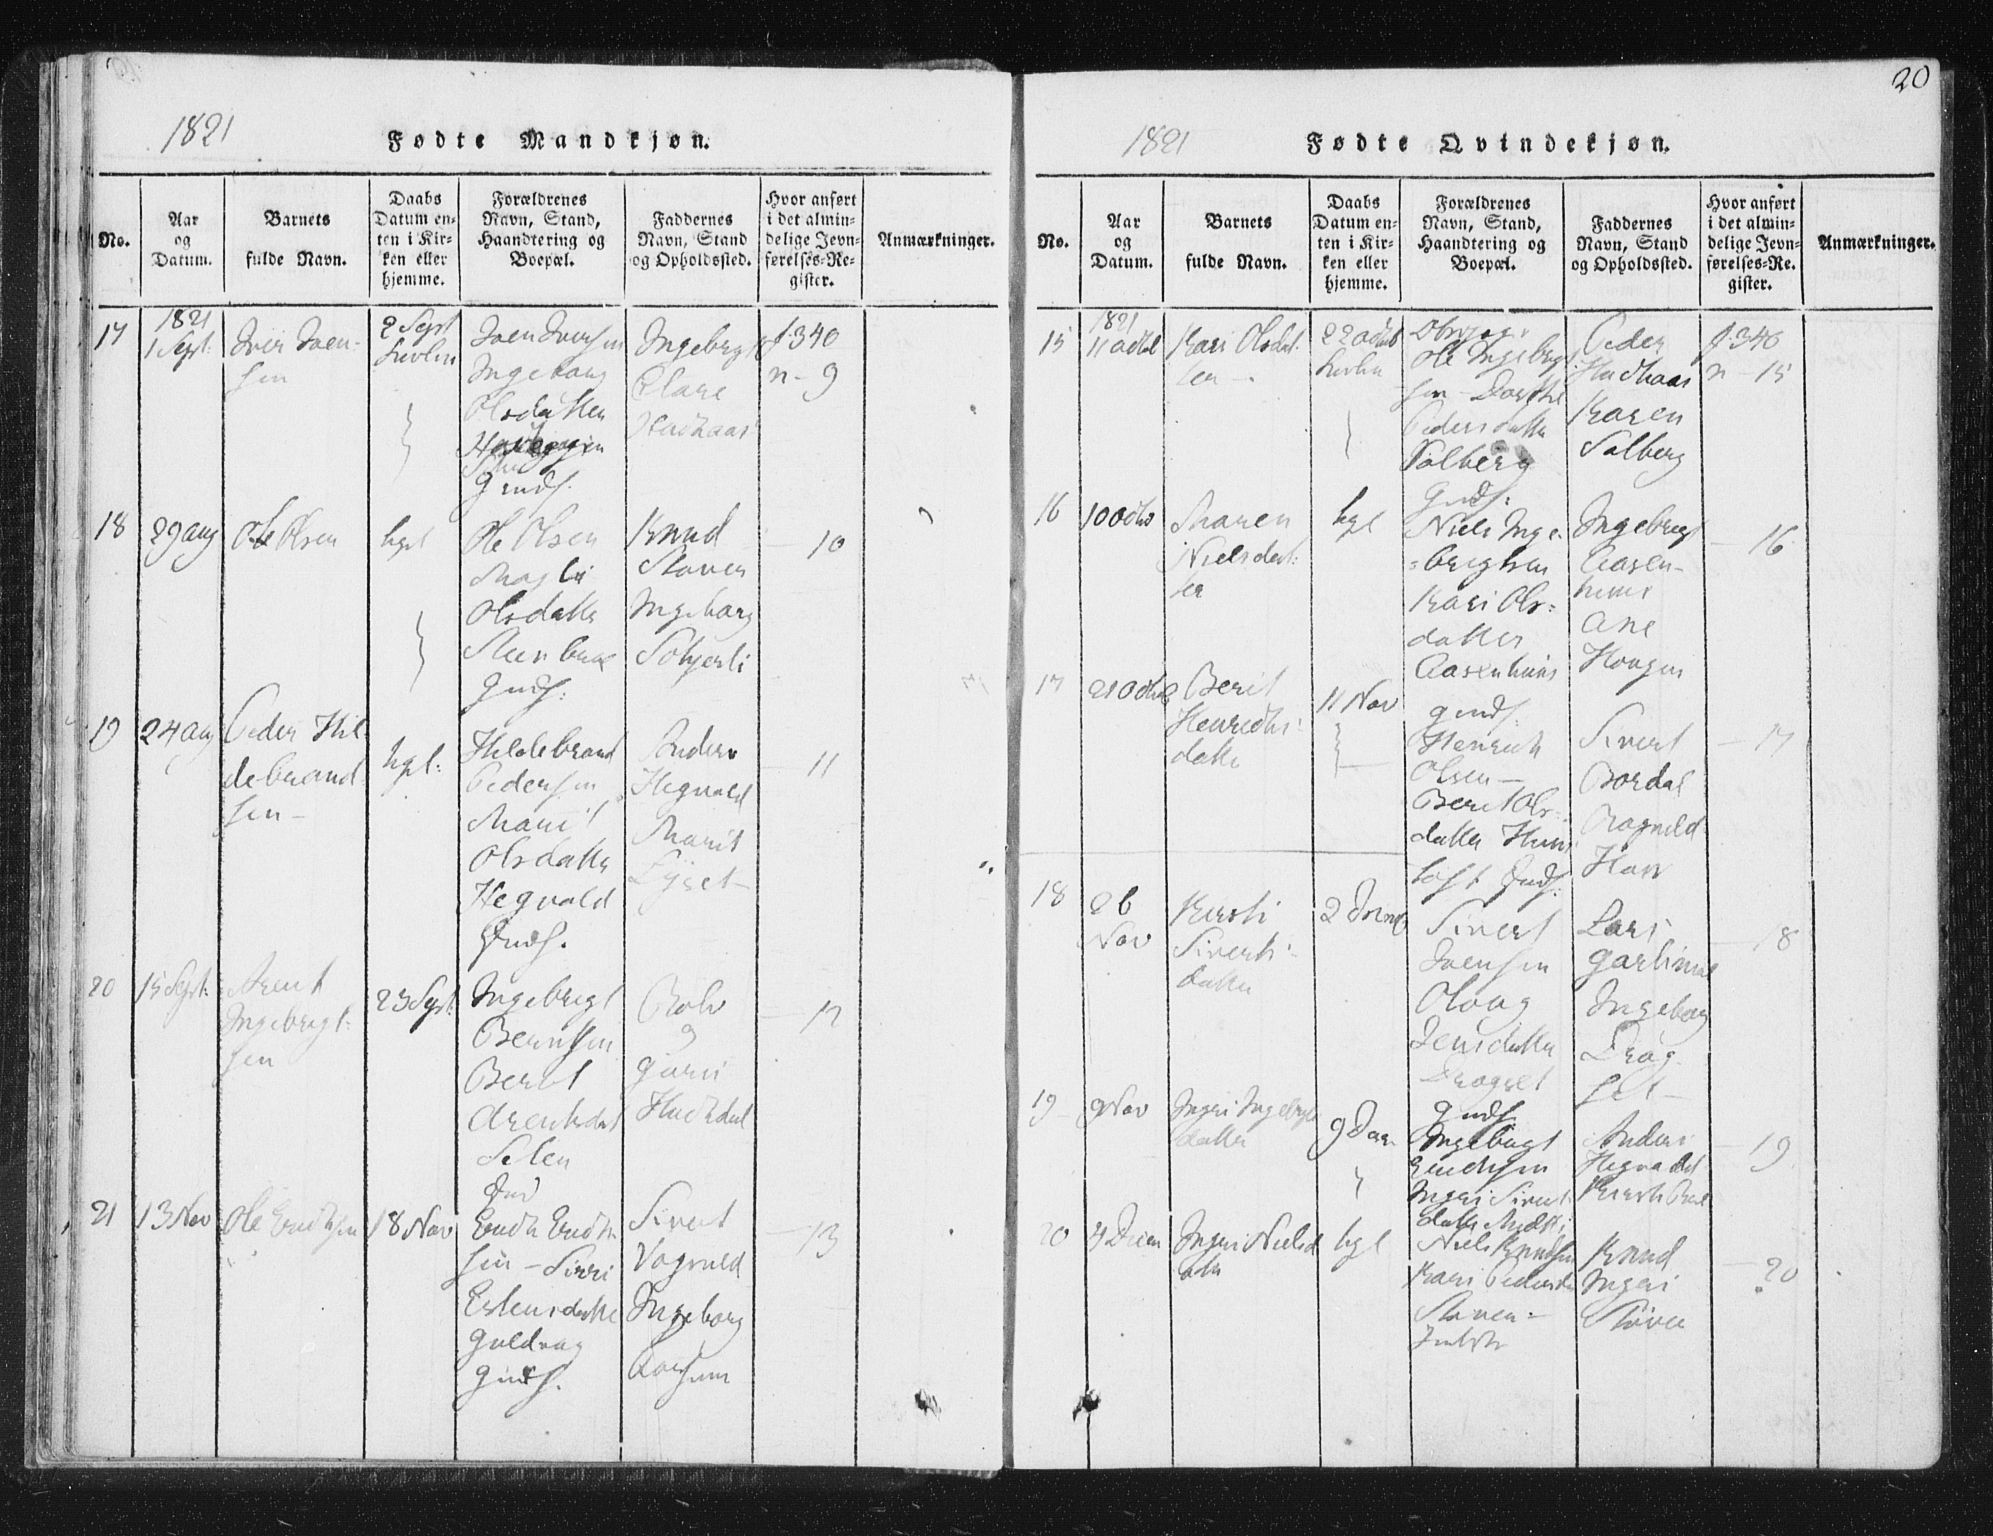 20
1821
Fødte Mandkjøn.
No.
Aar
og
Datum.
Barnets
fulde Navn.
Daabs
Datum en-
ten i Kir-
ken eller
hjemme.
Forældrenes
Navn, Stand,
Haandtering og
Boepæl.
Faddernes
Navn, Stand
og Opholdssted.
Hvor anført
i det almin-
delige Jevn-
førelses-Re-
gister.
Anmærkninger.
17
1821
1 Sept:
Iver Joen-
sen
2 Sept
Joen Iversen
Ingeborg
Olsdatter
Gudf:
Ingebrigt
Stadhaas
f 340
n - 9
18
29 aug
Ole Olsen
hgl
Ole Olsen
Magli
Olsdatter
Gudf:
Knud
Staven
Ingeborg
Solhjerli
- 10
19
24 aug
Peder Hil-
debrand
sen -
hgl:
Hildebrand
Pedersen
Marit
Olsdatter
Hegvald
Gudf.
Anders
Hegvald
Marit
Lyset -
- 11
20
15 Sept:
Arent
Ingebrigt-
sen
23 Sept:
Ingebrigt
Berntsen
Berit
Arentsdat
Selen
Gud
Rolv
og
Guri
- 12
21
13 Nov
Ole Endresen
18 Nov
sen - Siri
Estensdatter
Guldvag
Gudf.
Sivert
Vognild
Ingeborg
- 13
1821
Fødte Qvindekjøn.
No.
Aar
og
Datum.
Barnets
fulde Navn.
Daabs
Datum en-
ten i Kir-
ken eller
hjemme.
Forældrenes
Navn, Stand
Haandtering og
Boepæl.
Faddernes
Navn, Stand
og Opholdssted.
Hvor anført
i det almin-
delige Jevn-
førelses-Re-
gister.
Anmærkninger.
15
1821
11 Octob
Kari Olsdat-
ter -
22 Octob
Ole Ingebrigt
sen - Dorthe
Pedersdatter
Solberg
Gudf:
Peder
Stadhaas
Karen
Solberg
f: 340
n - 15
16
10 Octo
Maren
Nielsdat-
ter
hgl
Niels Inge-
brigtsen
Kari Ols-
datter
Aasenhuus
Gudf:
Ingebrigt
Aasen-
huus
Ane
Hougen
- 16
17
21 Octob
Berit
Henrichs-
datter
11 Nov
Henrich
Olsen -
Berit Ols-
datter Huus
toft Gudf:
Sivert
Bordal
Ragnild
Haar
- 17
18
26
Nov
Kirsti
Siverts-
datter
Sivert
Joensen
Olaug
Jensdatter
Dragset
Gudf
Lars
Ingeborg
Drag-
set -
18
19
9 Nov
Ingri Ingebrigts
datter
9 Decem
Ingebrigt
Endresen
Ingri Sivert-
datter
Anders
Hegvald
- 19
20
4 Decem
Ingri Nielsd
atter
hgl
Niels Knudsen
Kari Pedersda
Staven -
Knud
Ingri
Staven
- 20